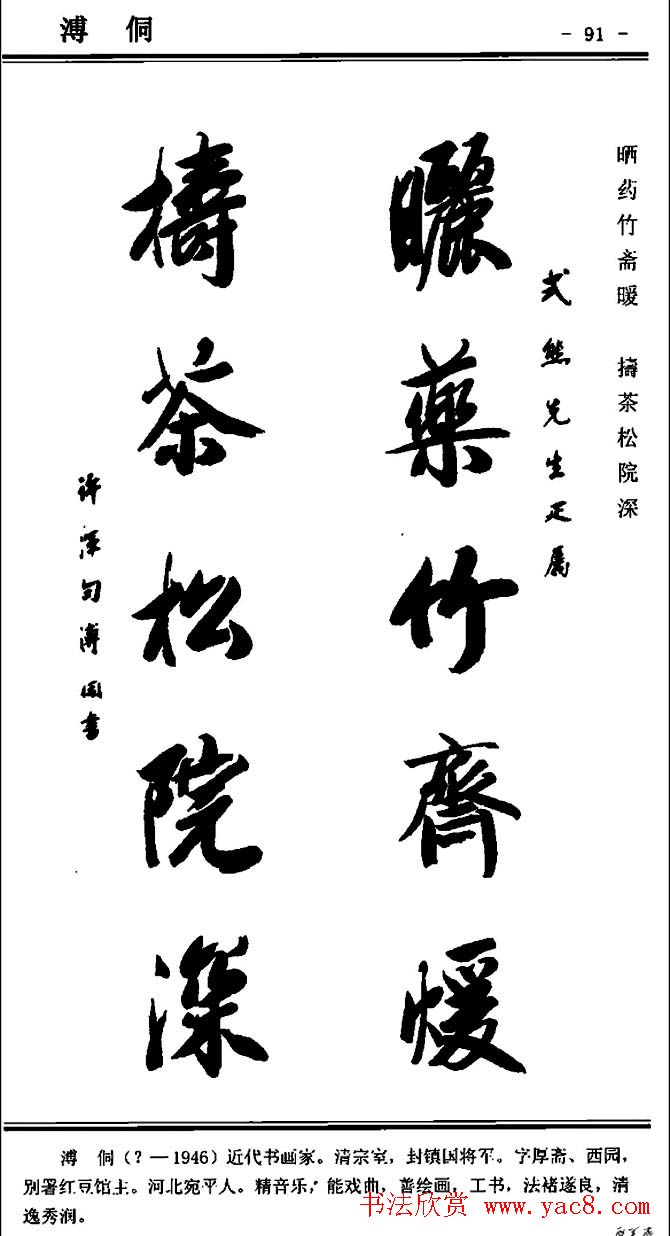 溥 侗
- 91 -
晒药竹斋暖 擣茶松院深
式熊先生正屬
曬藥竹齊煖
擣茶松院深
許渾句溥侗書
溥 侗（？—1946）近代书画家。清宗室，封镇国将军。字厚斋、西园，
别署红豆馆主。河北宛平人。精音乐，能戏曲，善绘画，工书，法褚遂良，清
逸秀润。
书法欣赏 www.yac8.com